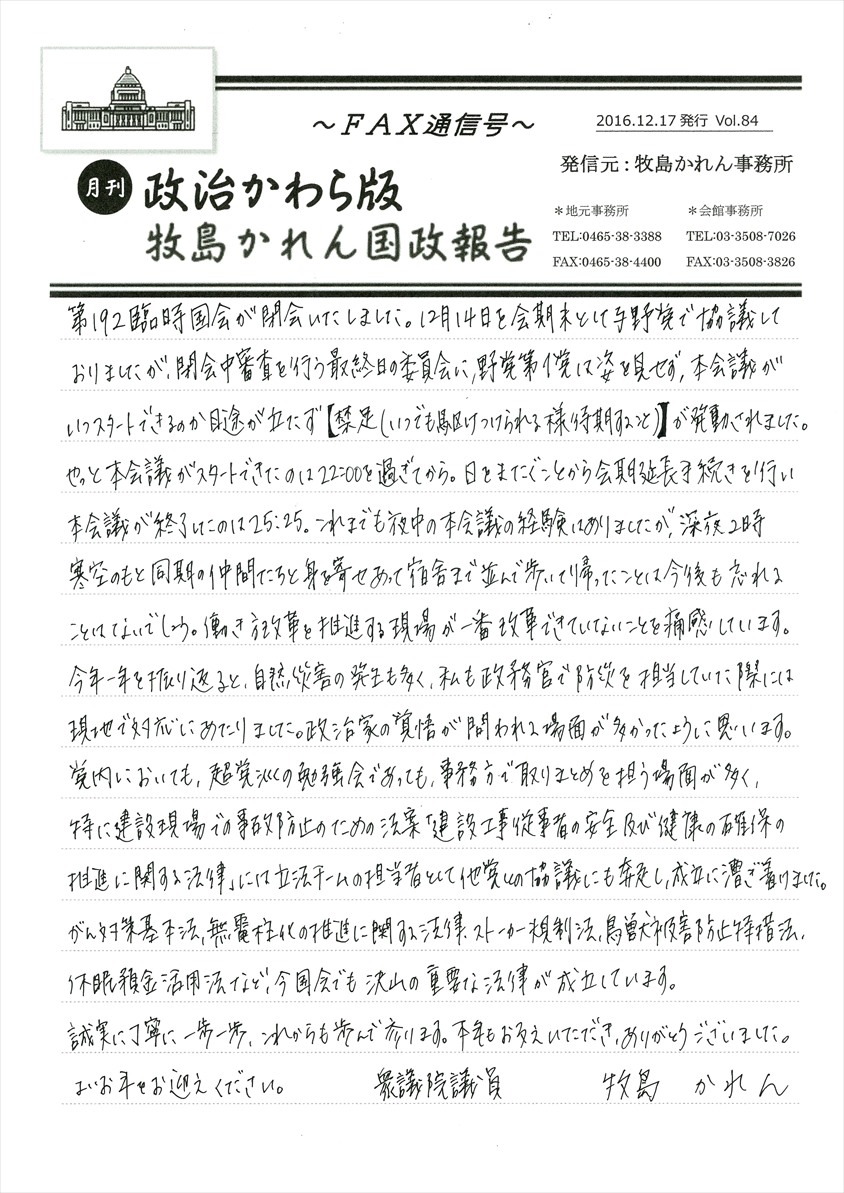 ～ＦＡＸ通信号～
2016.12.17 発行 Vol.84
発信元：牧島かれん事務所
月刊 政治かわら版
牧島かれん国政報告
＊地元事務所 ＊会館事務所
TEL:0465-38-3388 TEL:03-3508-7026
FAX:0465-38-4400 FAX:03-3508-3826
第192臨時国会が閉会いたしました。12月14日を会期末として与野党で協議して
おりましたが、閉会中審査を行う最終日の委員会に、野党第1党は姿を見せず、本会議が
いつスタートできるのか目途が立たず【禁足(いつでも駆けつけられる様待期すること)】が発動されました。
やっと本会議がスタートできたのは22:00を過ぎてから。日をまたぐことから会期延長手続きを行い
本会議が終了したのは25:25。これまでも夜中の本会議の経験はありましたが、深夜2時
寒空のもと同期の仲間たちと身を寄せあって宿舎まで並んで歩いて帰ったことは今後も忘れる
ことはないでしょう。働き方改革を推進する現場が一番改革できていないことを痛感しています。
今年一年を振り返ると、自然災害の発生も多く、私も政務官で防災を担当していた際には
現地で対応にあたりました。政治家の覚悟が問われる場面が多かったように思います。
党内においても、超党派の勉強会であっても、事務方で取りまとめを担う場面が多く、
特に建設現場での事故防止のための法案「建設工事従事者の安全及び健康の確保の
推進に関する法律」には立法チームの担当者として他党との協議にも奔走し、成立に漕ぎ着けました。
がん対策基本法、無電柱化の推進に関する法律、ストーカー規制法、鳥獣被害防止特措法、
休眠預金活用法など、今国会でも沢山の重要な法律が成立しています。
誠実に丁寧に一歩一歩、これからも歩んで参ります。本年もお支えいただき、ありがとうございました。
よいお年をお迎えください。 衆議院議員 牧島 かれん